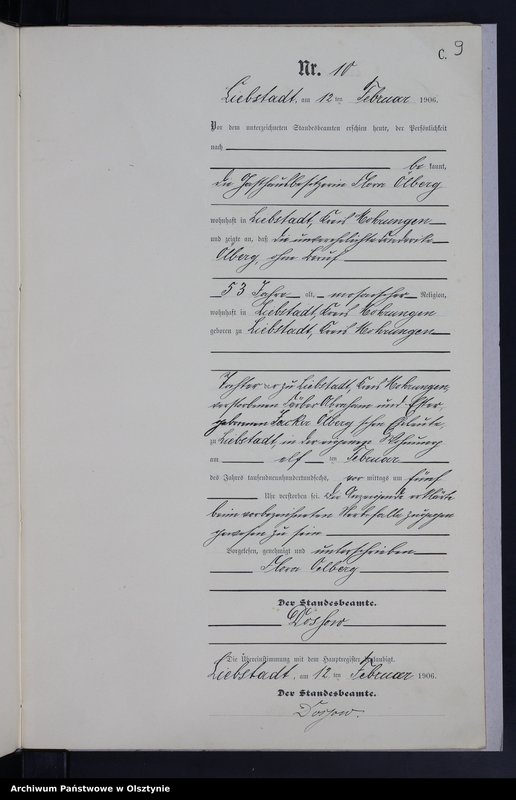 C. 9
Nr. 10
Liebstadt, am 12 ten Februar 1906.
Vor dem unterzeichneten Standesbeamten erschien heute, der Persönlichkeit
nach
be kannt,
die Gasthausbesitzerin Flora Ölberg
wohnhaft in Liebstadt, Kreis Mohrungen
und zeigte an, daß die unverehelichte
Ölberg, ohne Beruf
53 Jahre alt, mosaischer Religion,
wohnhaft in Liebstadt, Kreis Mohrungen
geboren zu Liebstadt, Kreis Mohrungen
Tochter der zu Liebstadt, Kreis Mohrungen
verstorbenen Färber Abraham und Ester,
geborenen Ölberg'schen Eheleute,
zu Liebstadt, in der eigenen Wohnung
am elf ten Februar
des Jahres tausendneunhundertundsechs, vor mittags um fünf
Uhr verstorben sei. Die Anzeigende erklärte
beim vorbezeichneten Sterbefalle zugegen
gewesen zu sein
Vorgelesen, genehmigt und unterschrieben
Flora Oelberg
Der Standesbeamte.
Dossow
Die Übereinstimmung mit dem Hauptregister beglaubigt.
Liebstadt, am 12 ten Februar 1906.
Der Standesbeamte.
Dossow.
Archiwum Państwowe w Olsztynie